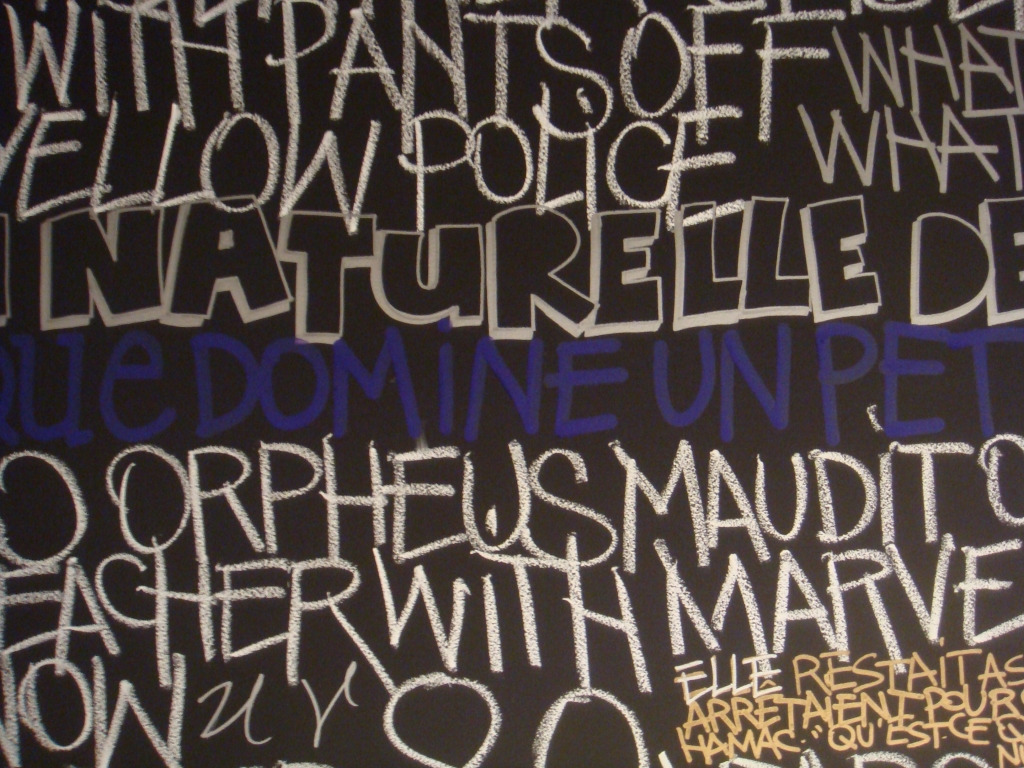 WITH PANTS OFF WHAT
YELLOW POLICE WHAT
NATURELLE DE
QUE DOMINE UN PET
O ORPHEUS MAUDIT
EACHER WITH MARVE
OW
ELLE RESTAIT AS
ARRETAIENT POUR
HAMAC. "QU'EST-CE